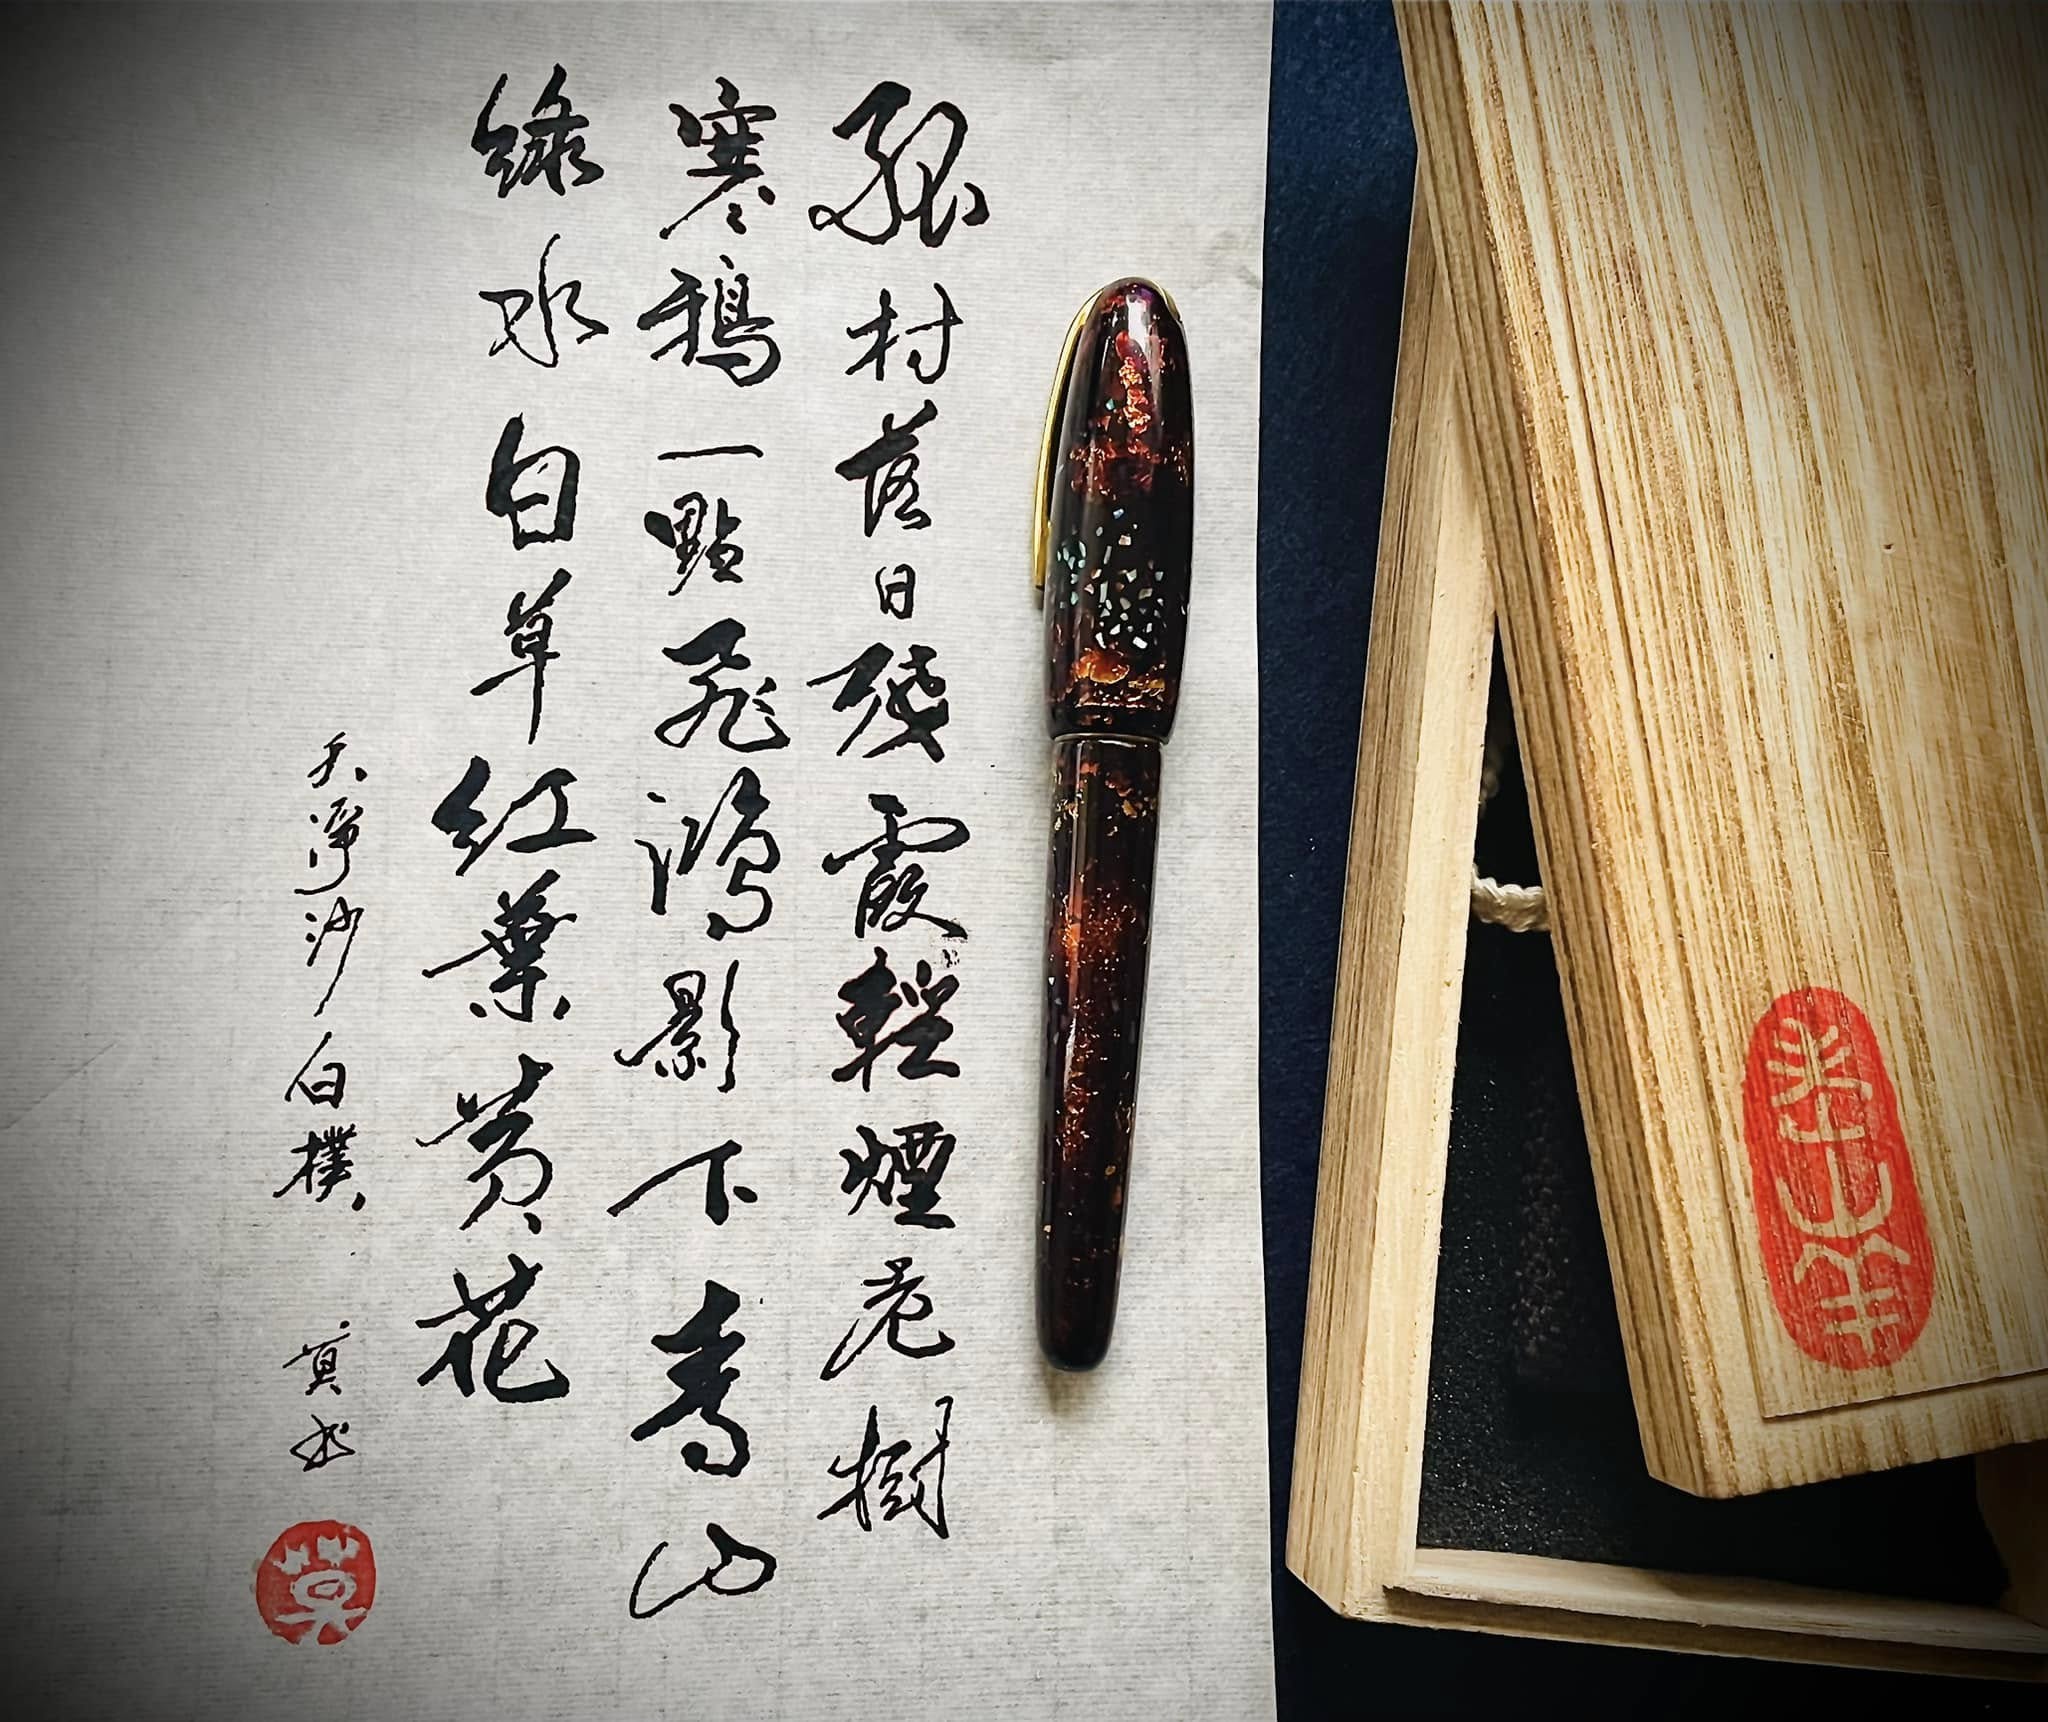 孤村落日殘霞輕煙老樹
寒鴉一點飛鴻影下青山
綠水白草紅葉黃花
天淨沙白樸
莫